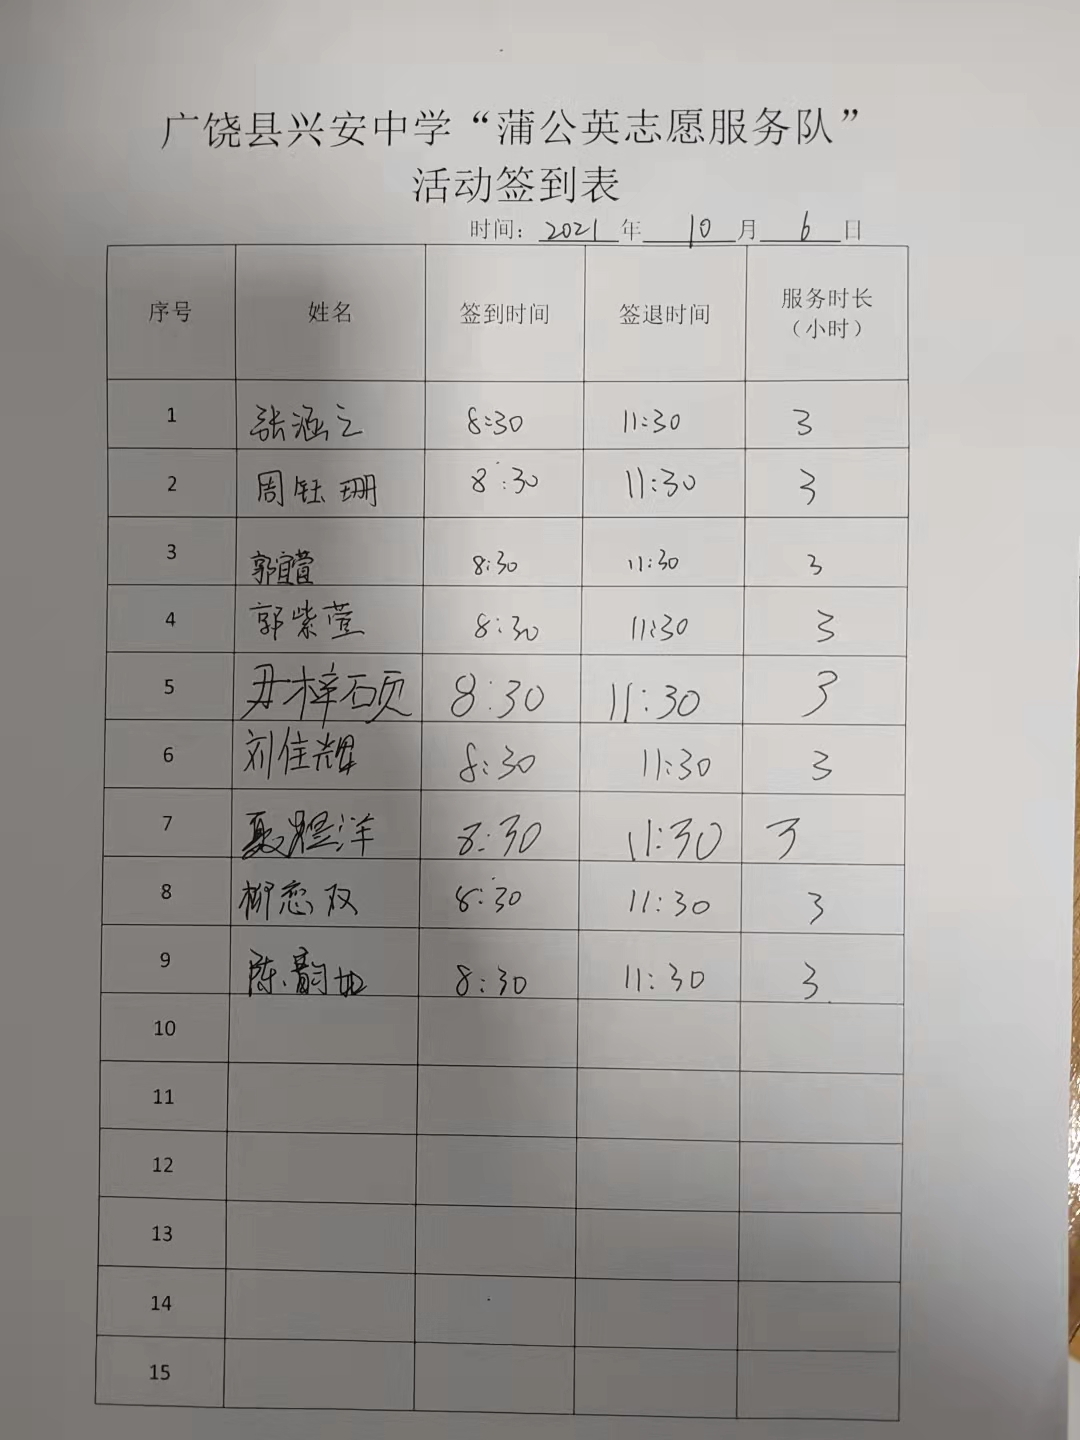 广饶县兴安中学“蒲公英志愿服务队”
活动签到表
时间：2021年10月6日
序号 姓名 签到时间 签退时间 服务时长（小时）
1 张涵之 8:30 11:30 3
2 周钰珊 8:30 11:30 3
3 郭宜萱 8:30 11:30 3
4 郭紫萱 8:30 11:30 3
5 尹梓硕 8:30 11:30 3
6 刘佳耀 8:30 11:30 3
7 聂煜洋 8:30 11:30 3
8 柳恋双 8:30 11:30 3
9 陈韵如 8:30 11:30 3
10
11
12
13
14
15